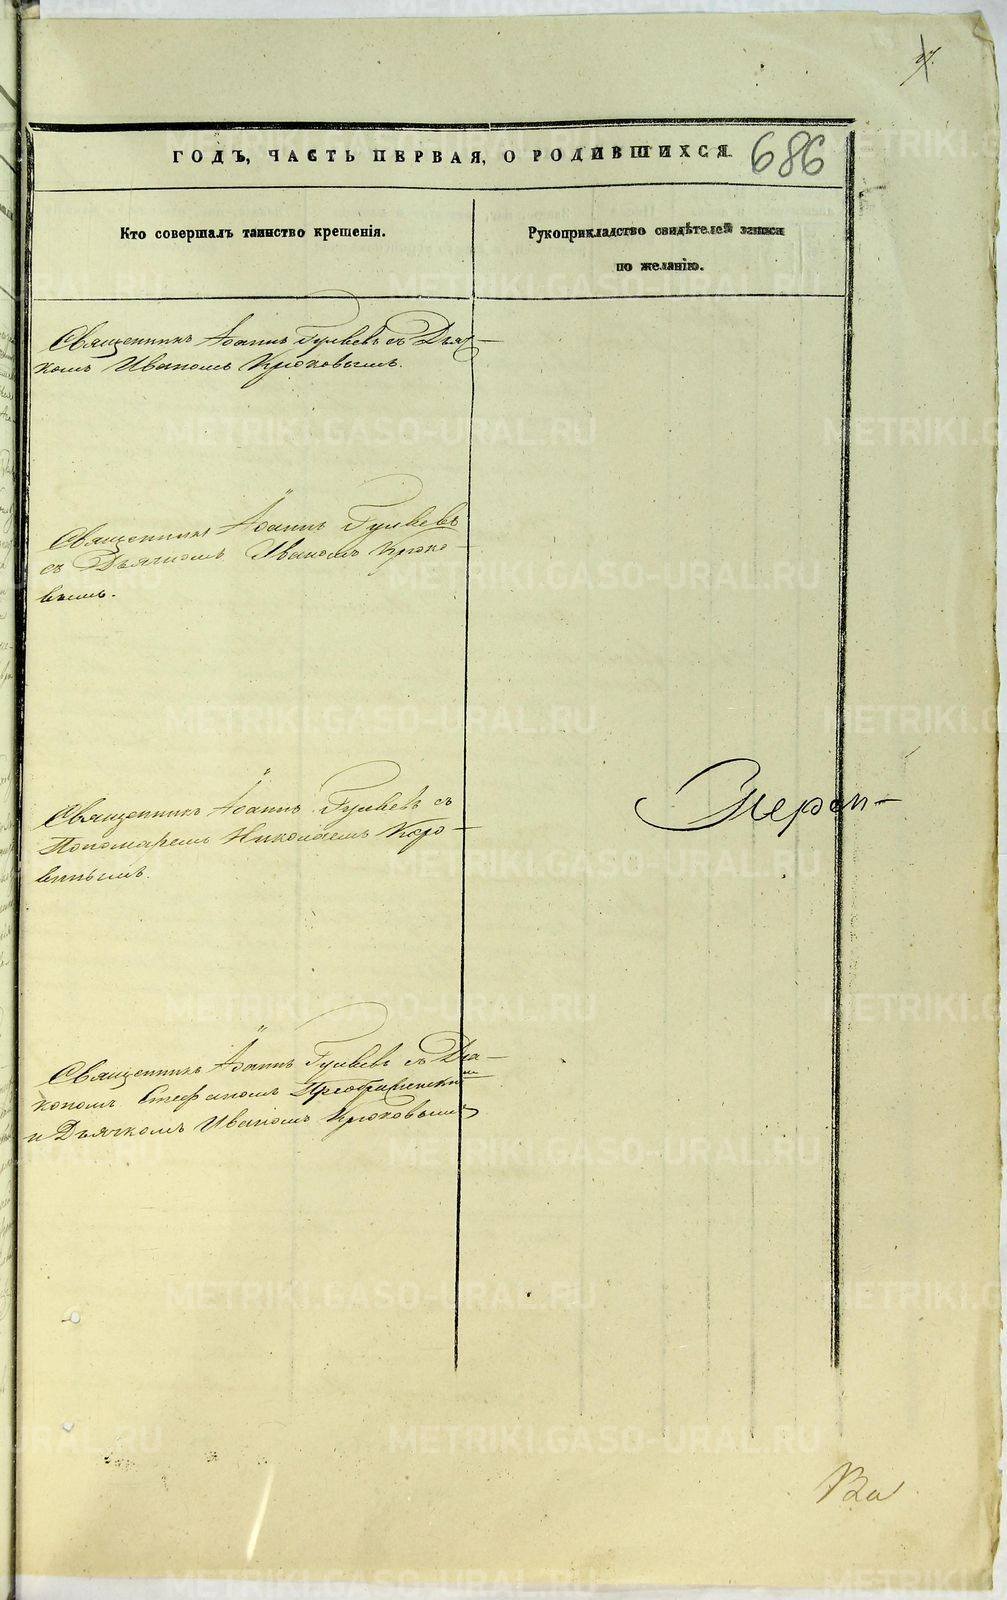 ГОДЪ, ЧАСТЬ ПЕРВАЯ, О РОДИВШИХСЯ. 686
Кто совершалъ таинство крещенія.
Рукоприкладство свидѣтелей записи
по желанію.
Священникъ Іоаннъ Гуляевъ съ Дьяч-
комъ Иваномъ Крюковымъ.
Священникъ Іоаннъ Гуляевъ
съ Дьячкомъ Иваномъ Крюко-
вымъ.
Священникъ Іоаннъ Гуляевъ съ
Пономаремъ Николаемъ Коро-
виннымъ.
Іерей-
Священникъ Іоаннъ Гуляевъ съ Діа-
кономъ Стефаномъ Преображенскимъ
и Дьячкомъ Иваномъ Крюковымъ
METRIKI.GASO-URAL.RU